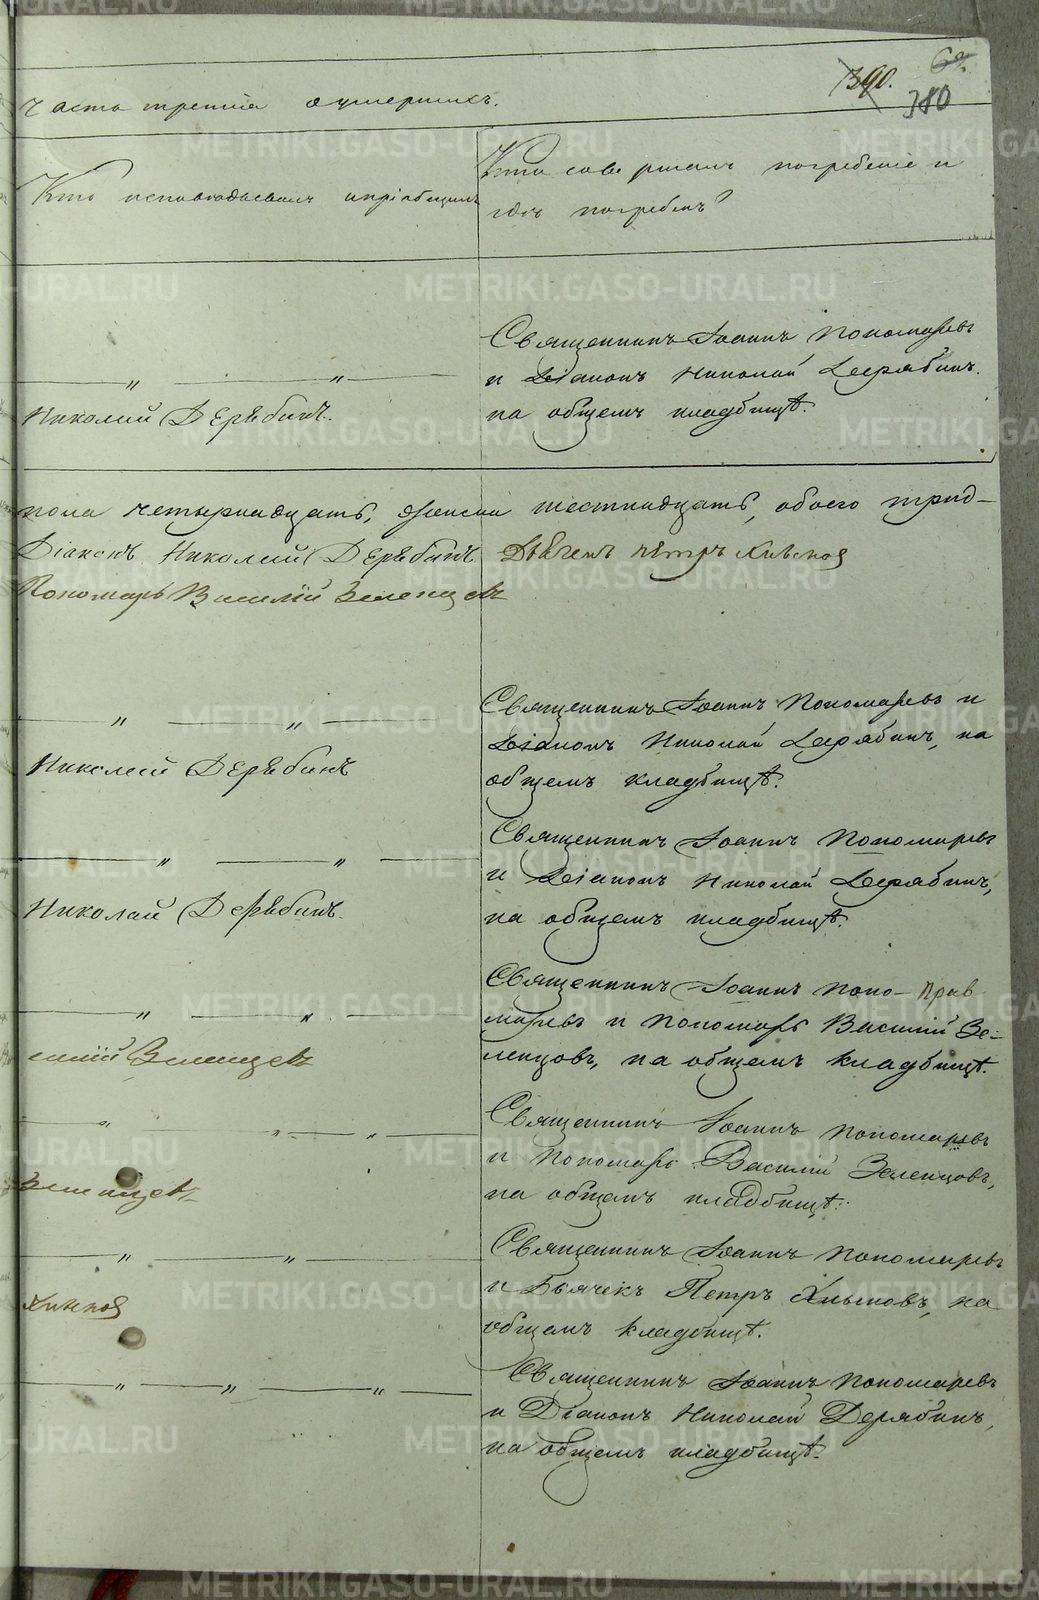 390. 69.
380
Часть третiя о умершихъ.
Кто исповѣдывалъ и прiобщалъ
Кто совершалъ погребенiе и
гдѣ погребенъ?
Священникъ Iоаннъ Пономаревъ
и Дiаконъ Николай Дерябинъ.
на общемъ кладбищѣ.
Николай Дерябинъ.
пола четырнадцать, женска шестнадцать, обоего трид-
Дiаконъ Николай Дерябинъ
Дьячекъ Петръ Хлыновъ
Пономарь Василiй Зеленцовъ
Священникъ Iоаннъ Пономаревъ и
Дiаконъ Николай Дерябинъ, на
общемъ кладбищѣ.
Николай Дерябинъ
Священникъ Iоаннъ Пономаревъ
и Дiаконъ Николай Дерябинъ,
на общемъ кладбищѣ.
Николай Дерябинъ.
Священникъ Iоаннъ Поно-
маревъ и Пономарь Василiй Зе-
ленцовъ, на общемъ кладбищѣ.
Зеленцовъ
Священникъ Iоаннъ Пономаревъ
и Пономарь Василiй Зеленцовъ,
на общемъ кладбищѣ.
Зеленцовъ
Священникъ Iоаннъ Пономаревъ
и Дьячекъ Петръ Хлыновъ, на
общемъ кладбищѣ.
Священникъ Iоаннъ Пономаревъ
и Дiаконъ Николай Дерябинъ,
на общемъ кладбищѣ.
METRIKI.GASO-URAL.RU